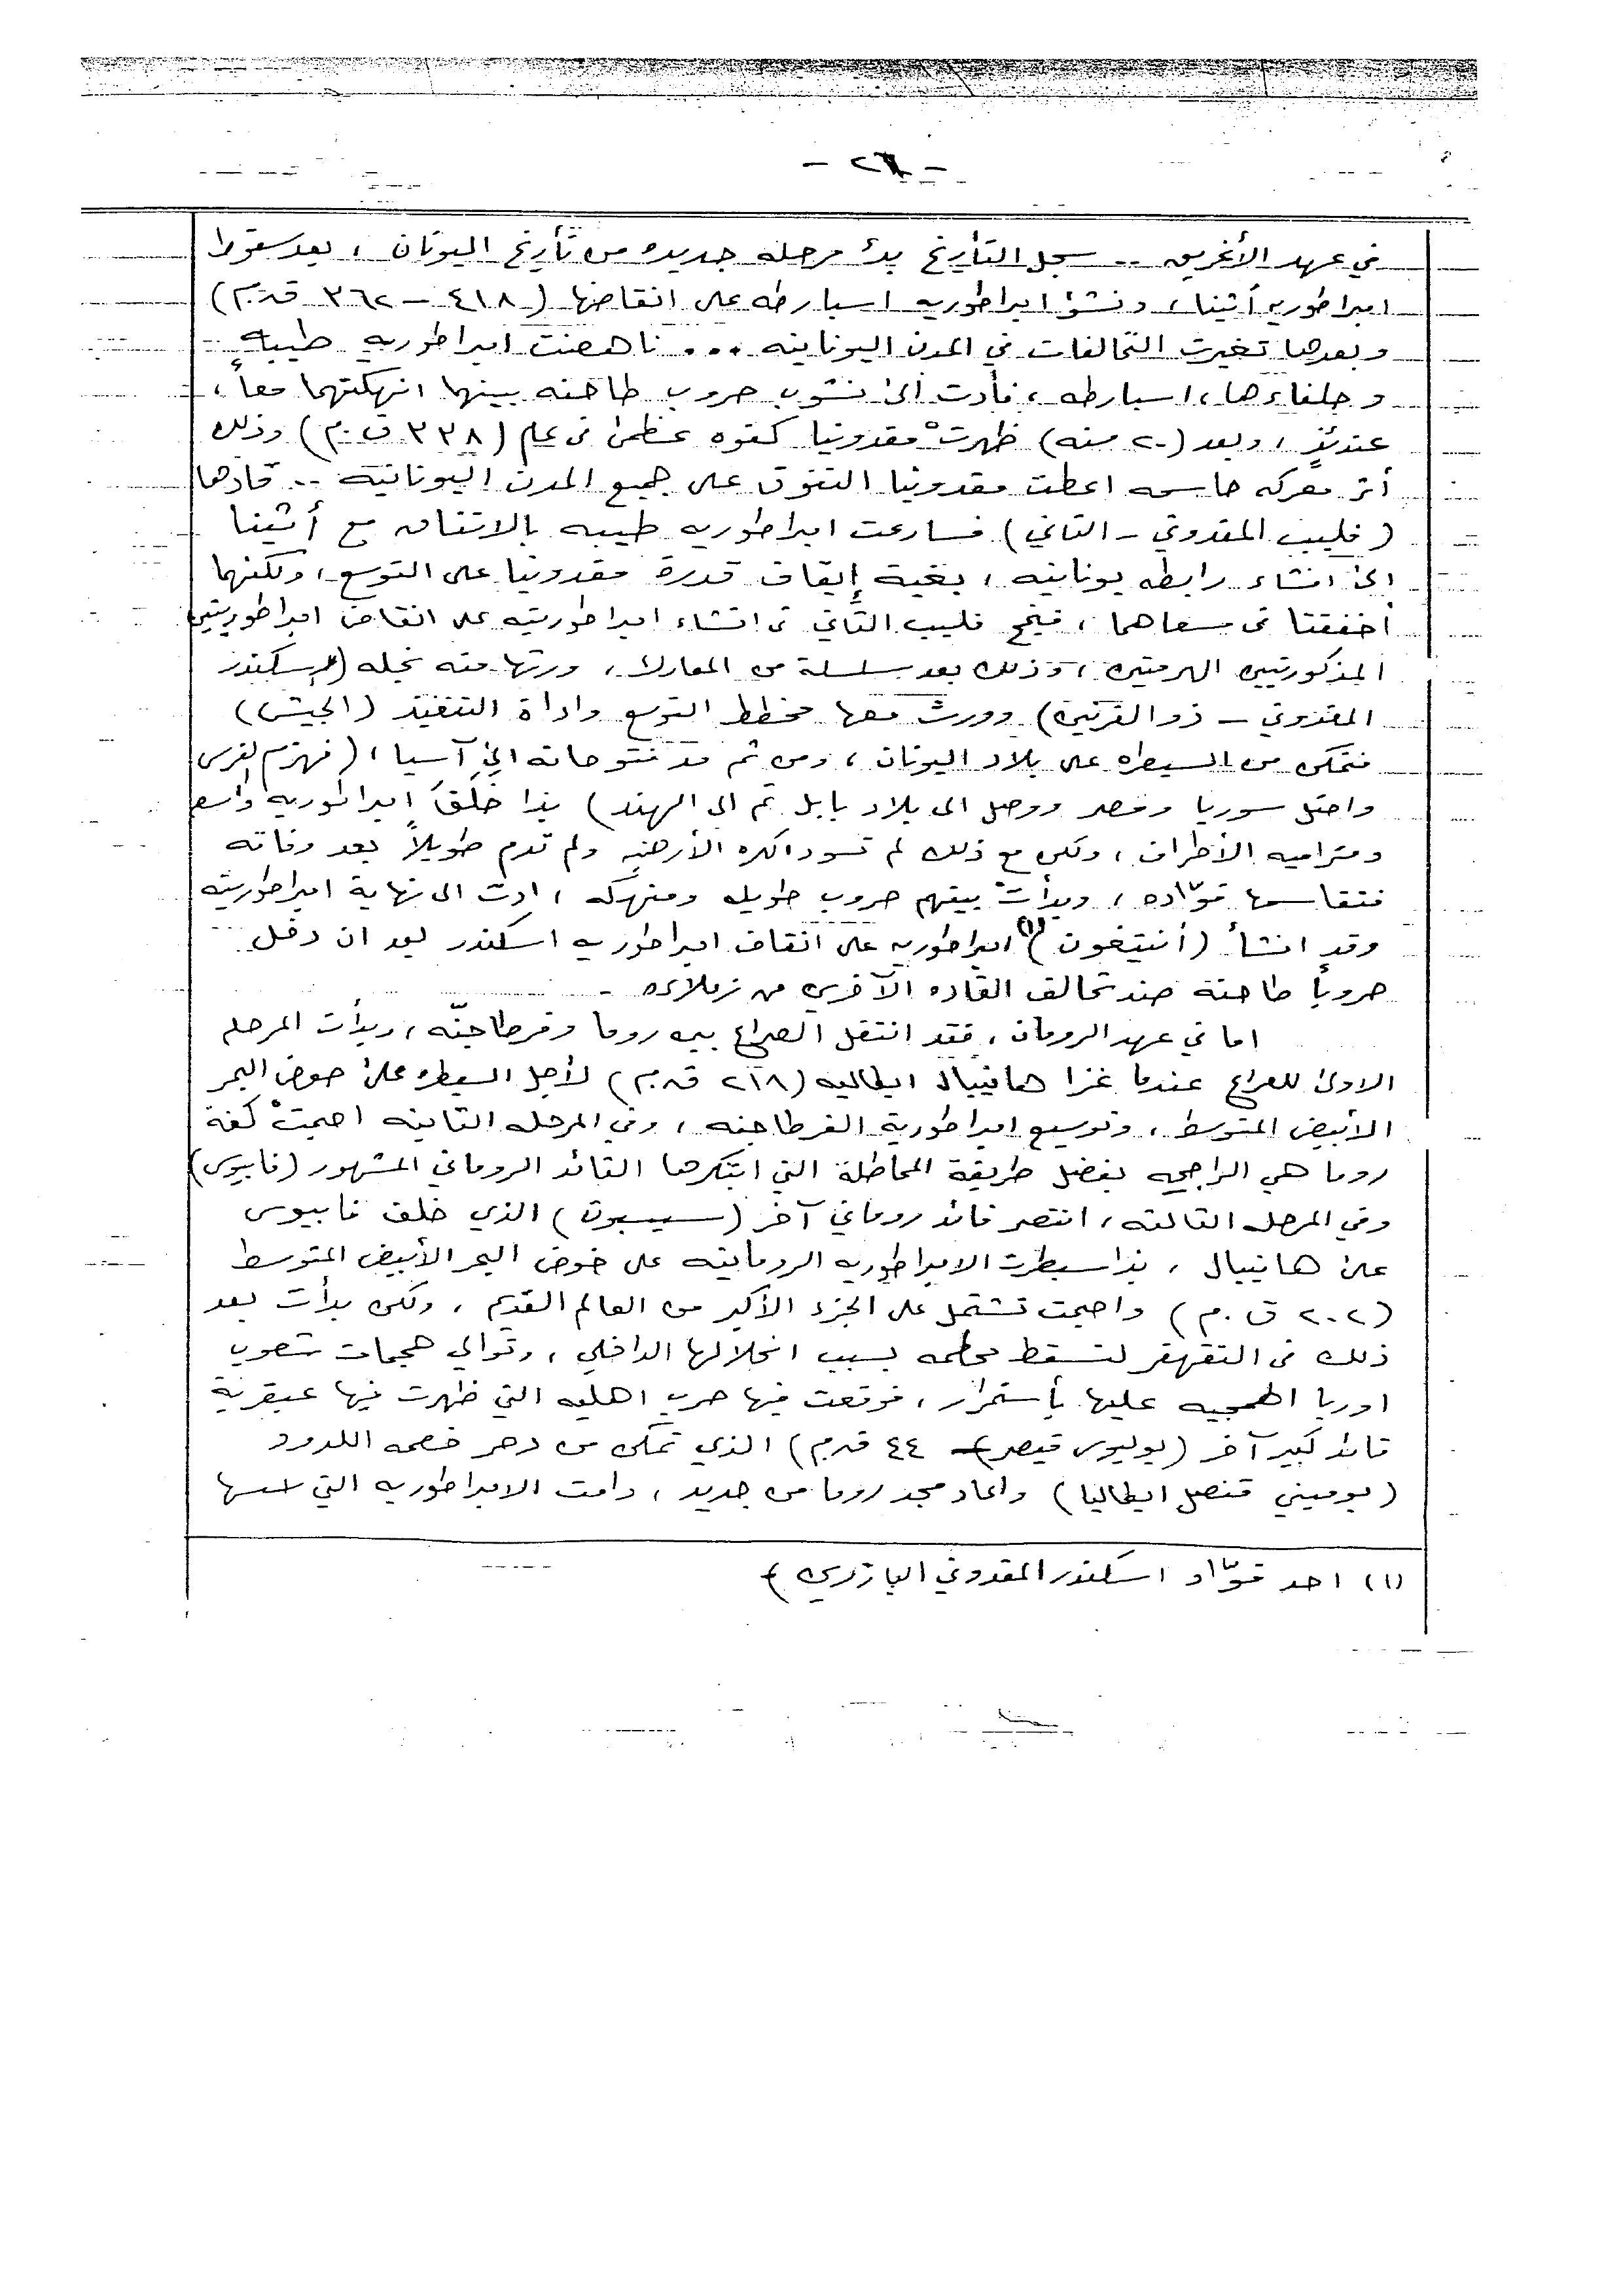 - ٢٦ -
في عهد الأغريق .. سجل التأريخ بدأ مرحله جديده من تأريخ اليونان ، بعد سقوط
امبراطوريه أثينا ، ونشؤ امبراطوريه اسبارطه على انقاضها ( ٤١٨ - ٣٦٢ ق.م )
وبعدها تغيرت التحالفات في المدن اليونانيه ... ناهضت امبراطوريه طيبه
وحلفاءها ، اسبارطه ، فأدت الى نشوب حروب طاحنه بينهما انهكتهما معاً ،
عندئذٍ ، وبعد (٢٠ سنه) ظهرتْ مقدونيا كقوه عظمى في عام ( ٣٣٨ ق.م ) وذلك
أثر معركه حاسمه اعطت مقدونيا التفوق على جميع المدن اليونانيه .. قادها
( فليب المقدوني - الثاني ) فسارعت امبراطوريه طيبه بالاتفاق مع أثينا
الى انشاء رابطه يونانيه ، بغية إيقاف قدرة مقدونيا على التوسع ، ولكنهما
أخفقتا في مسعاهما ، فنجح فليب الثاني في انشاء امبراطوريته على انقاض امبراطوريتين
المذكورتيين الهرمتين ، وذلك بعد سلسلة من المعارك ، ورثها منه نجله (اسكندر
المقدوني - ذو القرنين) وورث معها مخطط التوسع واداة التنفيذ (الجيش)
فتمكن من السيطره على بلاد اليونان ، ومن ثم مد فتوحاته الى آسيا ، ( فهزم الفرس
واحتل سوريا ومصر ووصل الى بلاد بابل ثم الى الهند ) بذا خلقَ امبراطوريه واسع
ومتراميه الأطراف ، ولكن مع ذلك لم تسود الكره الأرضيه ولم تدم طويلاً بعد وفاته
فتقاسمها قوّاده ، وبدأتْ بينهم حروب طويله ومنهكه ، ادت الى نهاية امبراطوريته
وقد انشأ ( أنتيغون )(١) امبراطوريه على انقاض امبراطوريه اسكندر بعد ان دخل
حروباً طاحنة ضد تحالف القاده الآخرين من زملائه .
اما في عهد الرومان ، فقد انتقل الصراع بين روما وقرطاجنّه ، وبدأت المرحله
الاولى للصراع عندما غزا هانيبال ايطاليه ( ٢١٨ ق.م ) لأجل السيطره على حوض البحر
الأبيض المتوسط ، وتوسيع امبراطورية القرطاجنه ، وفي المرحله الثانيه اصبحتْ كفة
روما هي الراجحه بفضل طريقة المماطلة التي ابتكرها القائد الروماني المشهور (فابيوس)
وفي المرحله الثالثه ، انتصر قائد روماني آخر ( سيبيون ) الذي خلف فابيوس
على هانيبال ، بذا سيطرت الامبراطوريه الرومانيه على حوض البحر الأبيض المتوسط
( ٢٠٢ ق.م ) واصبحت تشتمل على الجزء الأكبر من العالم القديم ، ولكن بدأت بعد
ذلك في التقهقر لتسقط محطمه بسبب انحلالها الداخلي ، وتوالي هجمات شعوب
اوربا الهمجيه عليها بأستمرار ، فوقعت فيها حرب اهليه التي ظهرت فيها عبقرية
قائد كبير آخر ( يوليوس قيصر - ٤٤ ق.م ) الذي تمكن من دحر خصمه اللدود
( بومبيني قنصل ايطاليا ) واعاد مجد روما من جديد ، دامت الامبراطوريه التي اسسها
(١) احد قوّاد اسكندر المقدوني البارزين